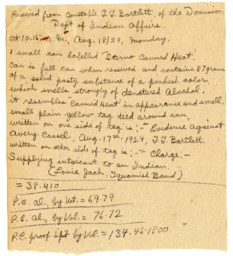 Received from Constable T.J. Bartlett, of the Dominion
Dept of Indian Affairs.
At 10.15 a.m., Aug. 18/24, Monday.
1 small can labelled "Sterno Canned Heat".
Can is full can when received and contains 87 grams
of a solid pasty substance of a pinkish color,
which smells strongly of denatured Alcohol.
It resembles Canned Heat in appearance and smell.
Small plain yellow tag tied around can,
written on one side of tag is;- Evidence against
Avery Casell, Aug. 17th, 1924, T.J. Bartlett.
written on other side of tag is;- Charge,-
Supplying intoxicant to an Indian.
(Louie Jack, Squamish Band)
= 38.410
P.C. al., by Wt. = 69.79
P.C. al., by Vol. = 76.72
P.C. proof spt by Vol. = 134.45